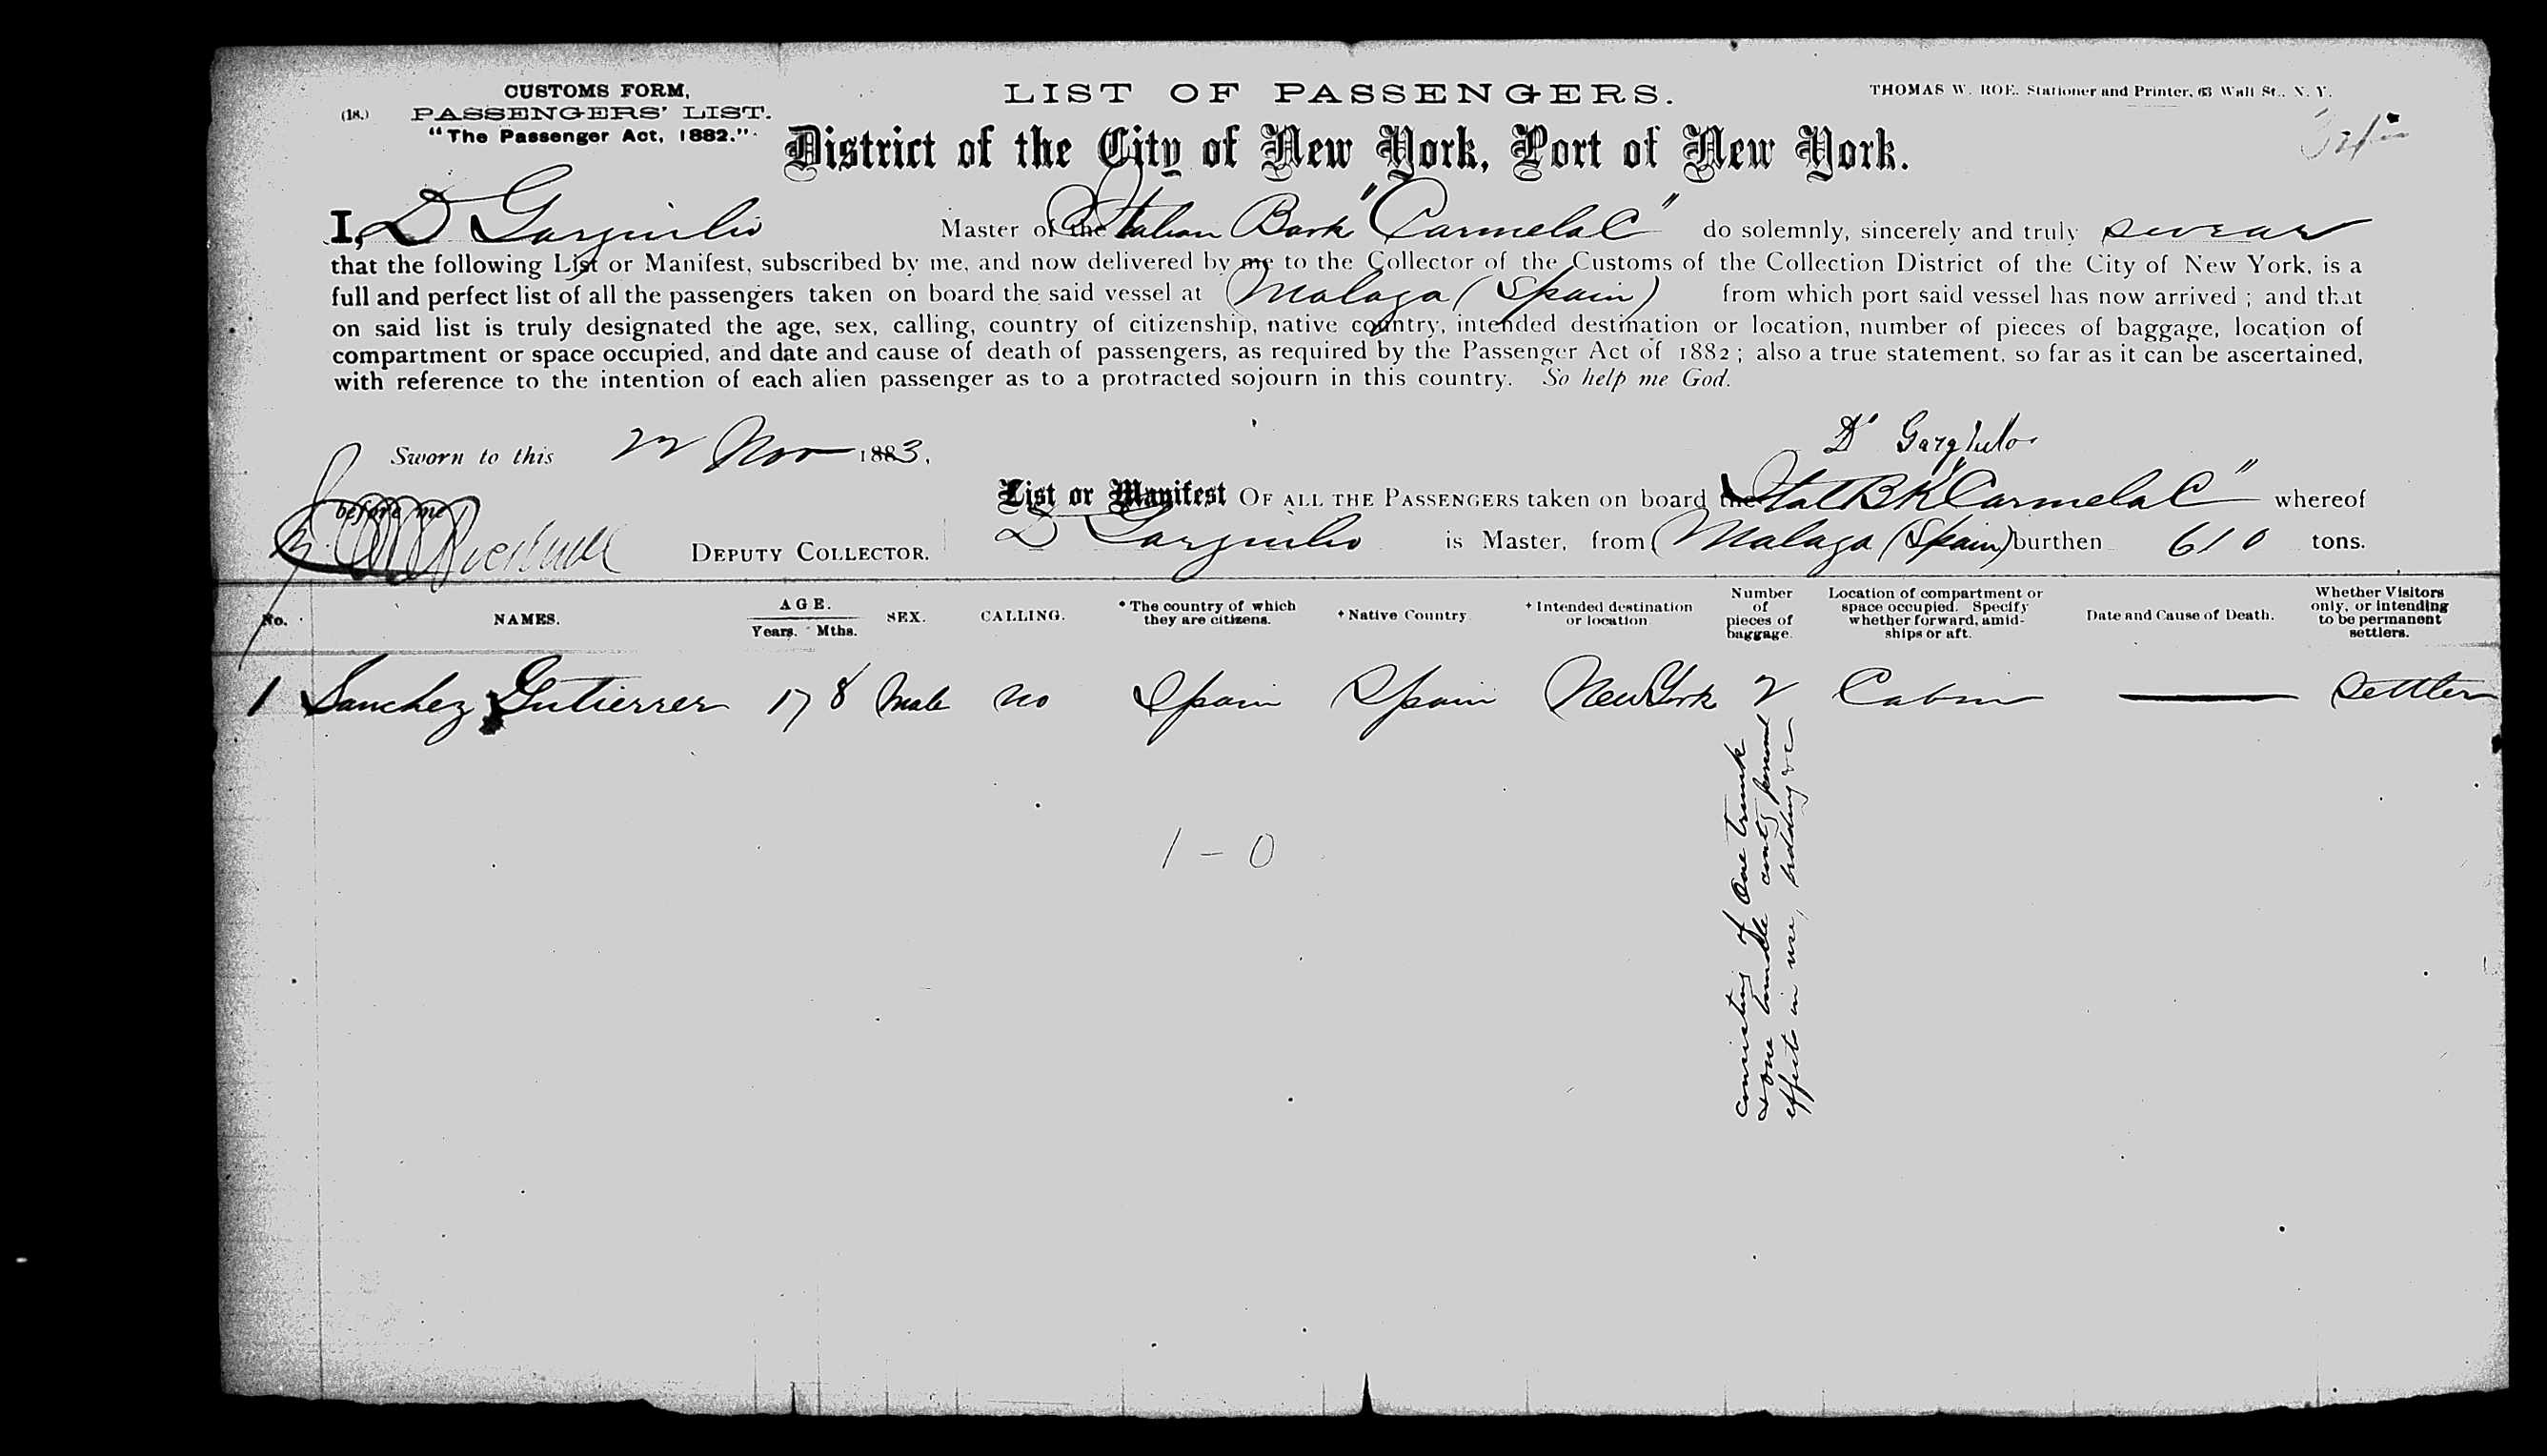 CUSTOMS FORM,
(18.) PASSENGERS' LIST.
"The Passenger Act, 1882."
LIST OF PASSENGERS.
THOMAS W. ROE. Stationer and Printer, 63 Wall St., N. Y.
District of the City of New York, Port of New York.
I, D Gargiulio Master of the Italian Bark "Carmela C" do solemnly, sincerely and truly swear
that the following List or Manifest, subscribed by me, and now delivered by me to the Collector of the Customs of the Collection District of the City of New York, is a
full and perfect list of all the passengers taken on board the said vessel at Malaga (Spain) from which port said vessel has now arrived ; and that
on said list is truly designated the age, sex, calling, country of citizenship, native country, intended destination or location, number of pieces of baggage, location of
compartment or space occupied, and date and cause of death of passengers, as required by the Passenger Act of 1882 ; also a true statement, so far as it can be ascertained,
with reference to the intention of each alien passenger as to a protracted sojourn in this country. So help me God.
D Gargiulo
Sworn to this 22 Nov 1883,
before me
DEPUTY COLLECTOR.
List or Manifest OF ALL THE PASSENGERS taken on board the Ital Bk "Carmela C" whereof
D Gargiulio is Master, from Malaga (Spain) burthen 610 tons.
No. NAMES. AGE. Years. Mths. SEX. CALLING. * The country of which they are citizens. * Native Country * Intended destination or location Number of pieces of baggage. Location of compartment or space occupied. Specify whether forward, amidships or aft. Date and Cause of Death. Whether Visitors only, or intending to be permanent settlers.
1 Sanchez Gutierrer 17 8 Male no Spain Spain New York 2 Cabin — Settler
consisting of One trunk
& one bundle contg personal
effects in use, bedding &c
1 - 0